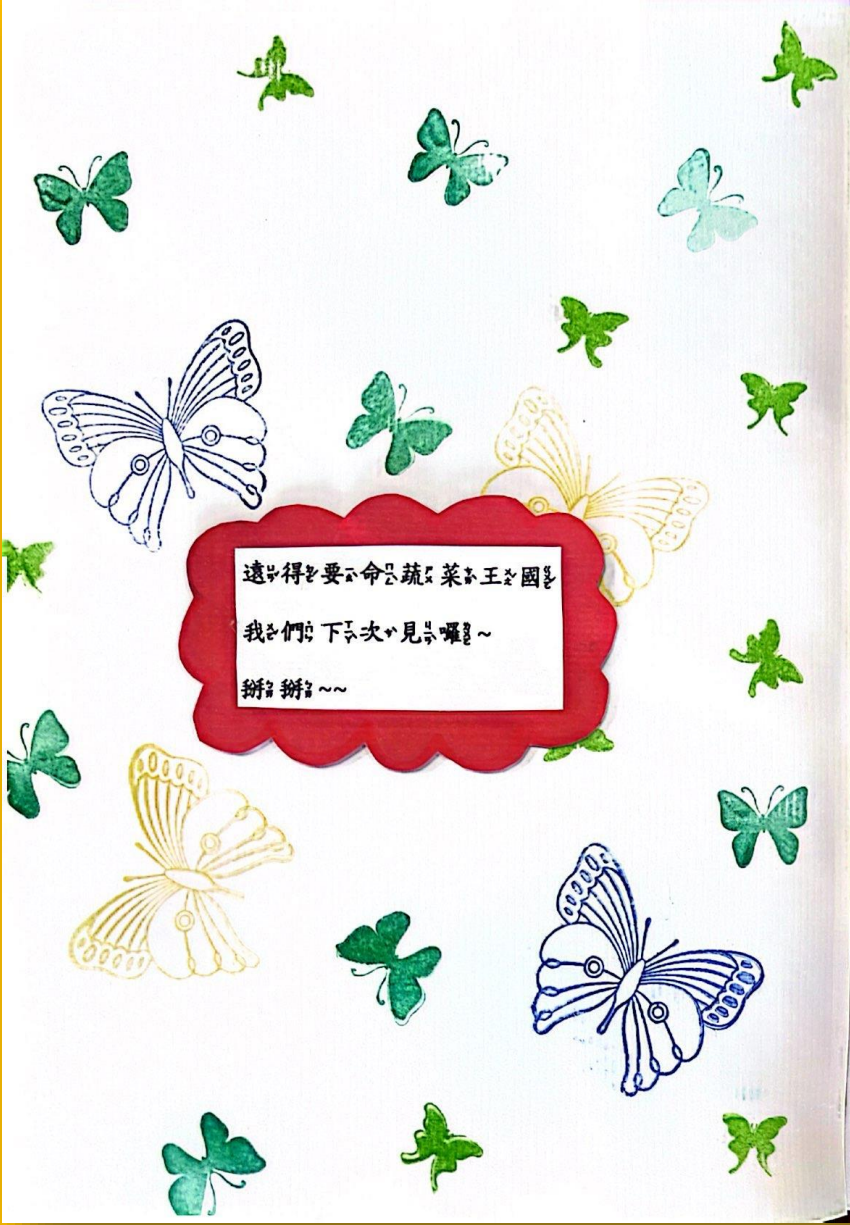 遠得要命蔬菜王國
我們下次見囉~
掰掰~~